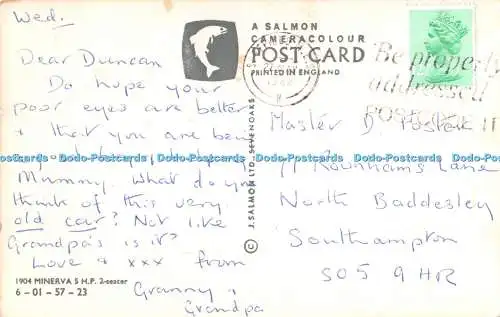 Wed.
Dear Duncan
Do hope your
poor eyes are better
& that you are being
Mummy. What do you
think of this very
old car? Not like
Grandpa's is it?
Love & xxx from
Granny &
Grandpa
1904 MINERVA 5 H.P. 2-seater
6-01-57-23
A SALMON
CAMERACOLOUR
POST CARD
PRINTED IN ENGLAND
© J. SALMON LTD. SEVENOAKS
Be properly
addressed
POST
IT
Master D
Lane
North Baddesley
Southampton
SO5 9HR
Dodo-Postcards Dodo-Postcards Dodo-Postcards Dodo-Postcards Dodo-Postcards Dodo-Postcards